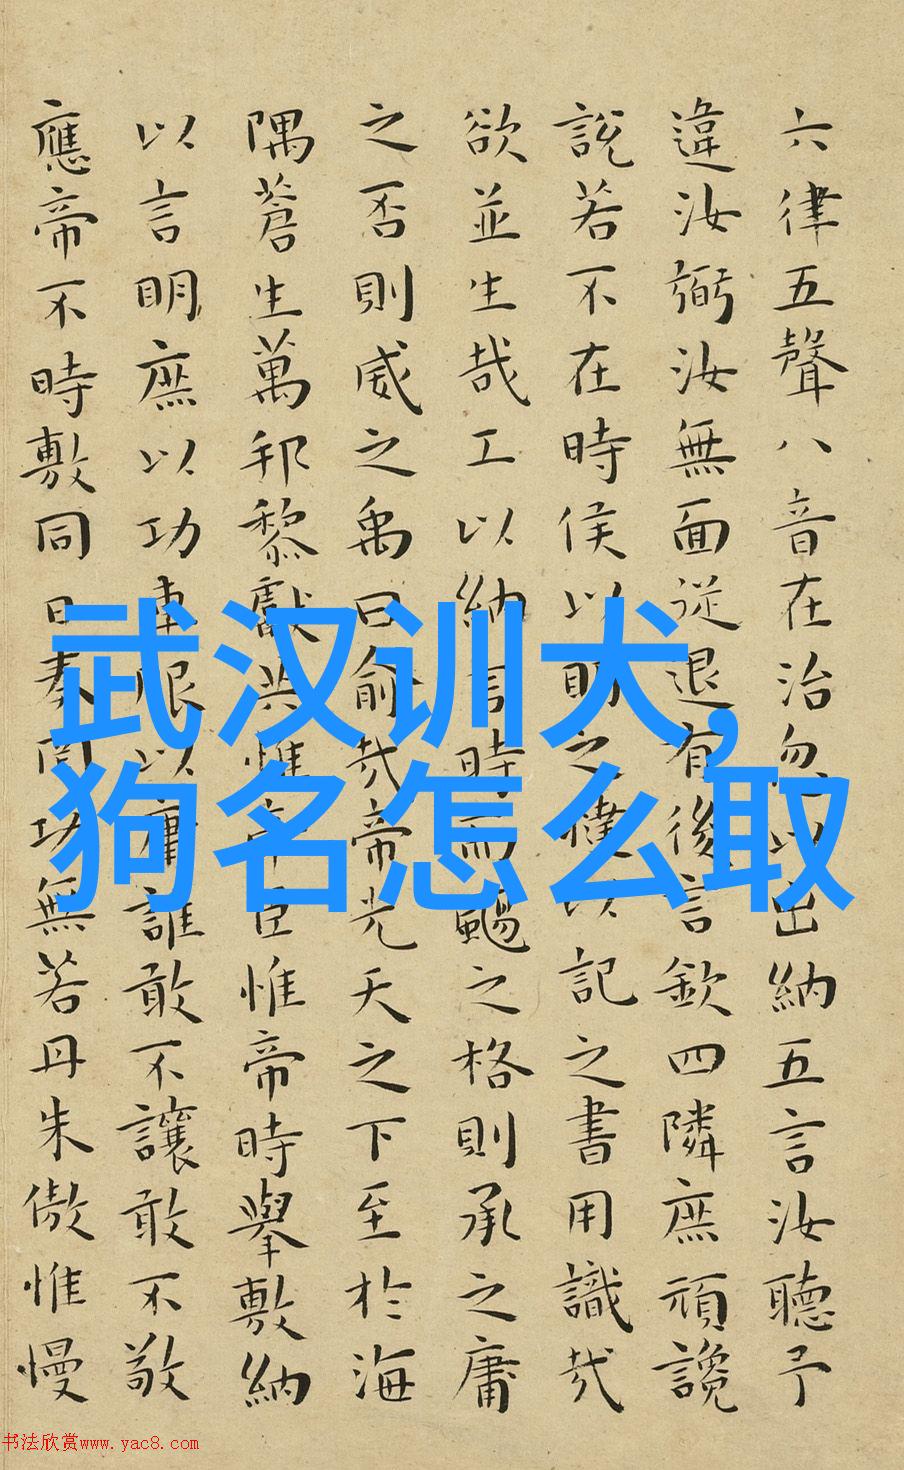 六律五聲八音在治忽以出納五言汝聽予
違汝弼汝無面從退有後言欽四隣庶頑讒
說若不在時侯以明之撻以記之書用識哉
欲並生哉工以納言時而颺之格則承之庸
之否則威之禹曰俞哉帝光天之下至於海
隅蒼生萬邦黎獻共惟帝臣惟帝時舉敷納
以言明庶以功車服以庸誰敢不讓敢不敬
應帝不時敷同日奏罔功無若丹朱傲惟慢
武汉训犬,
狗名怎么取
书法欣赏www.yac8.com